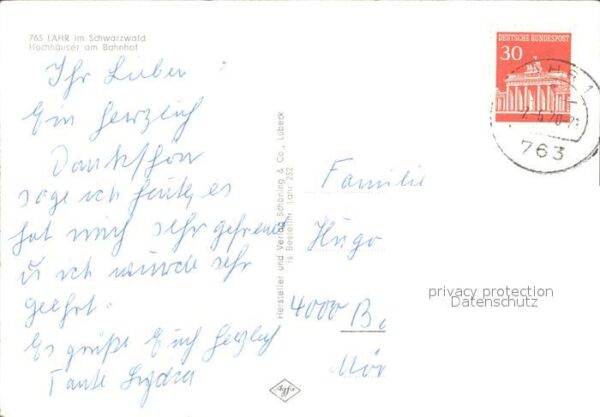 765 LAHR im Schwarzwald
Hochhäuser am Bahnhof
Ihr Lieber
Ein herzlich
Dankschön
sage ich heute, es
hat mich sehr gefreut
u ich wurde sehr
geehrt.
Es grüßt Euch herzlich
Tante Lydia
Hersteller und Verlag Schöning & Co., Lübeck
Lahr 232
DEUTSCHE BUNDESPOST
30
763
Familie
Hugo
4000 Be
Mör
privacy protection
Datenschutz